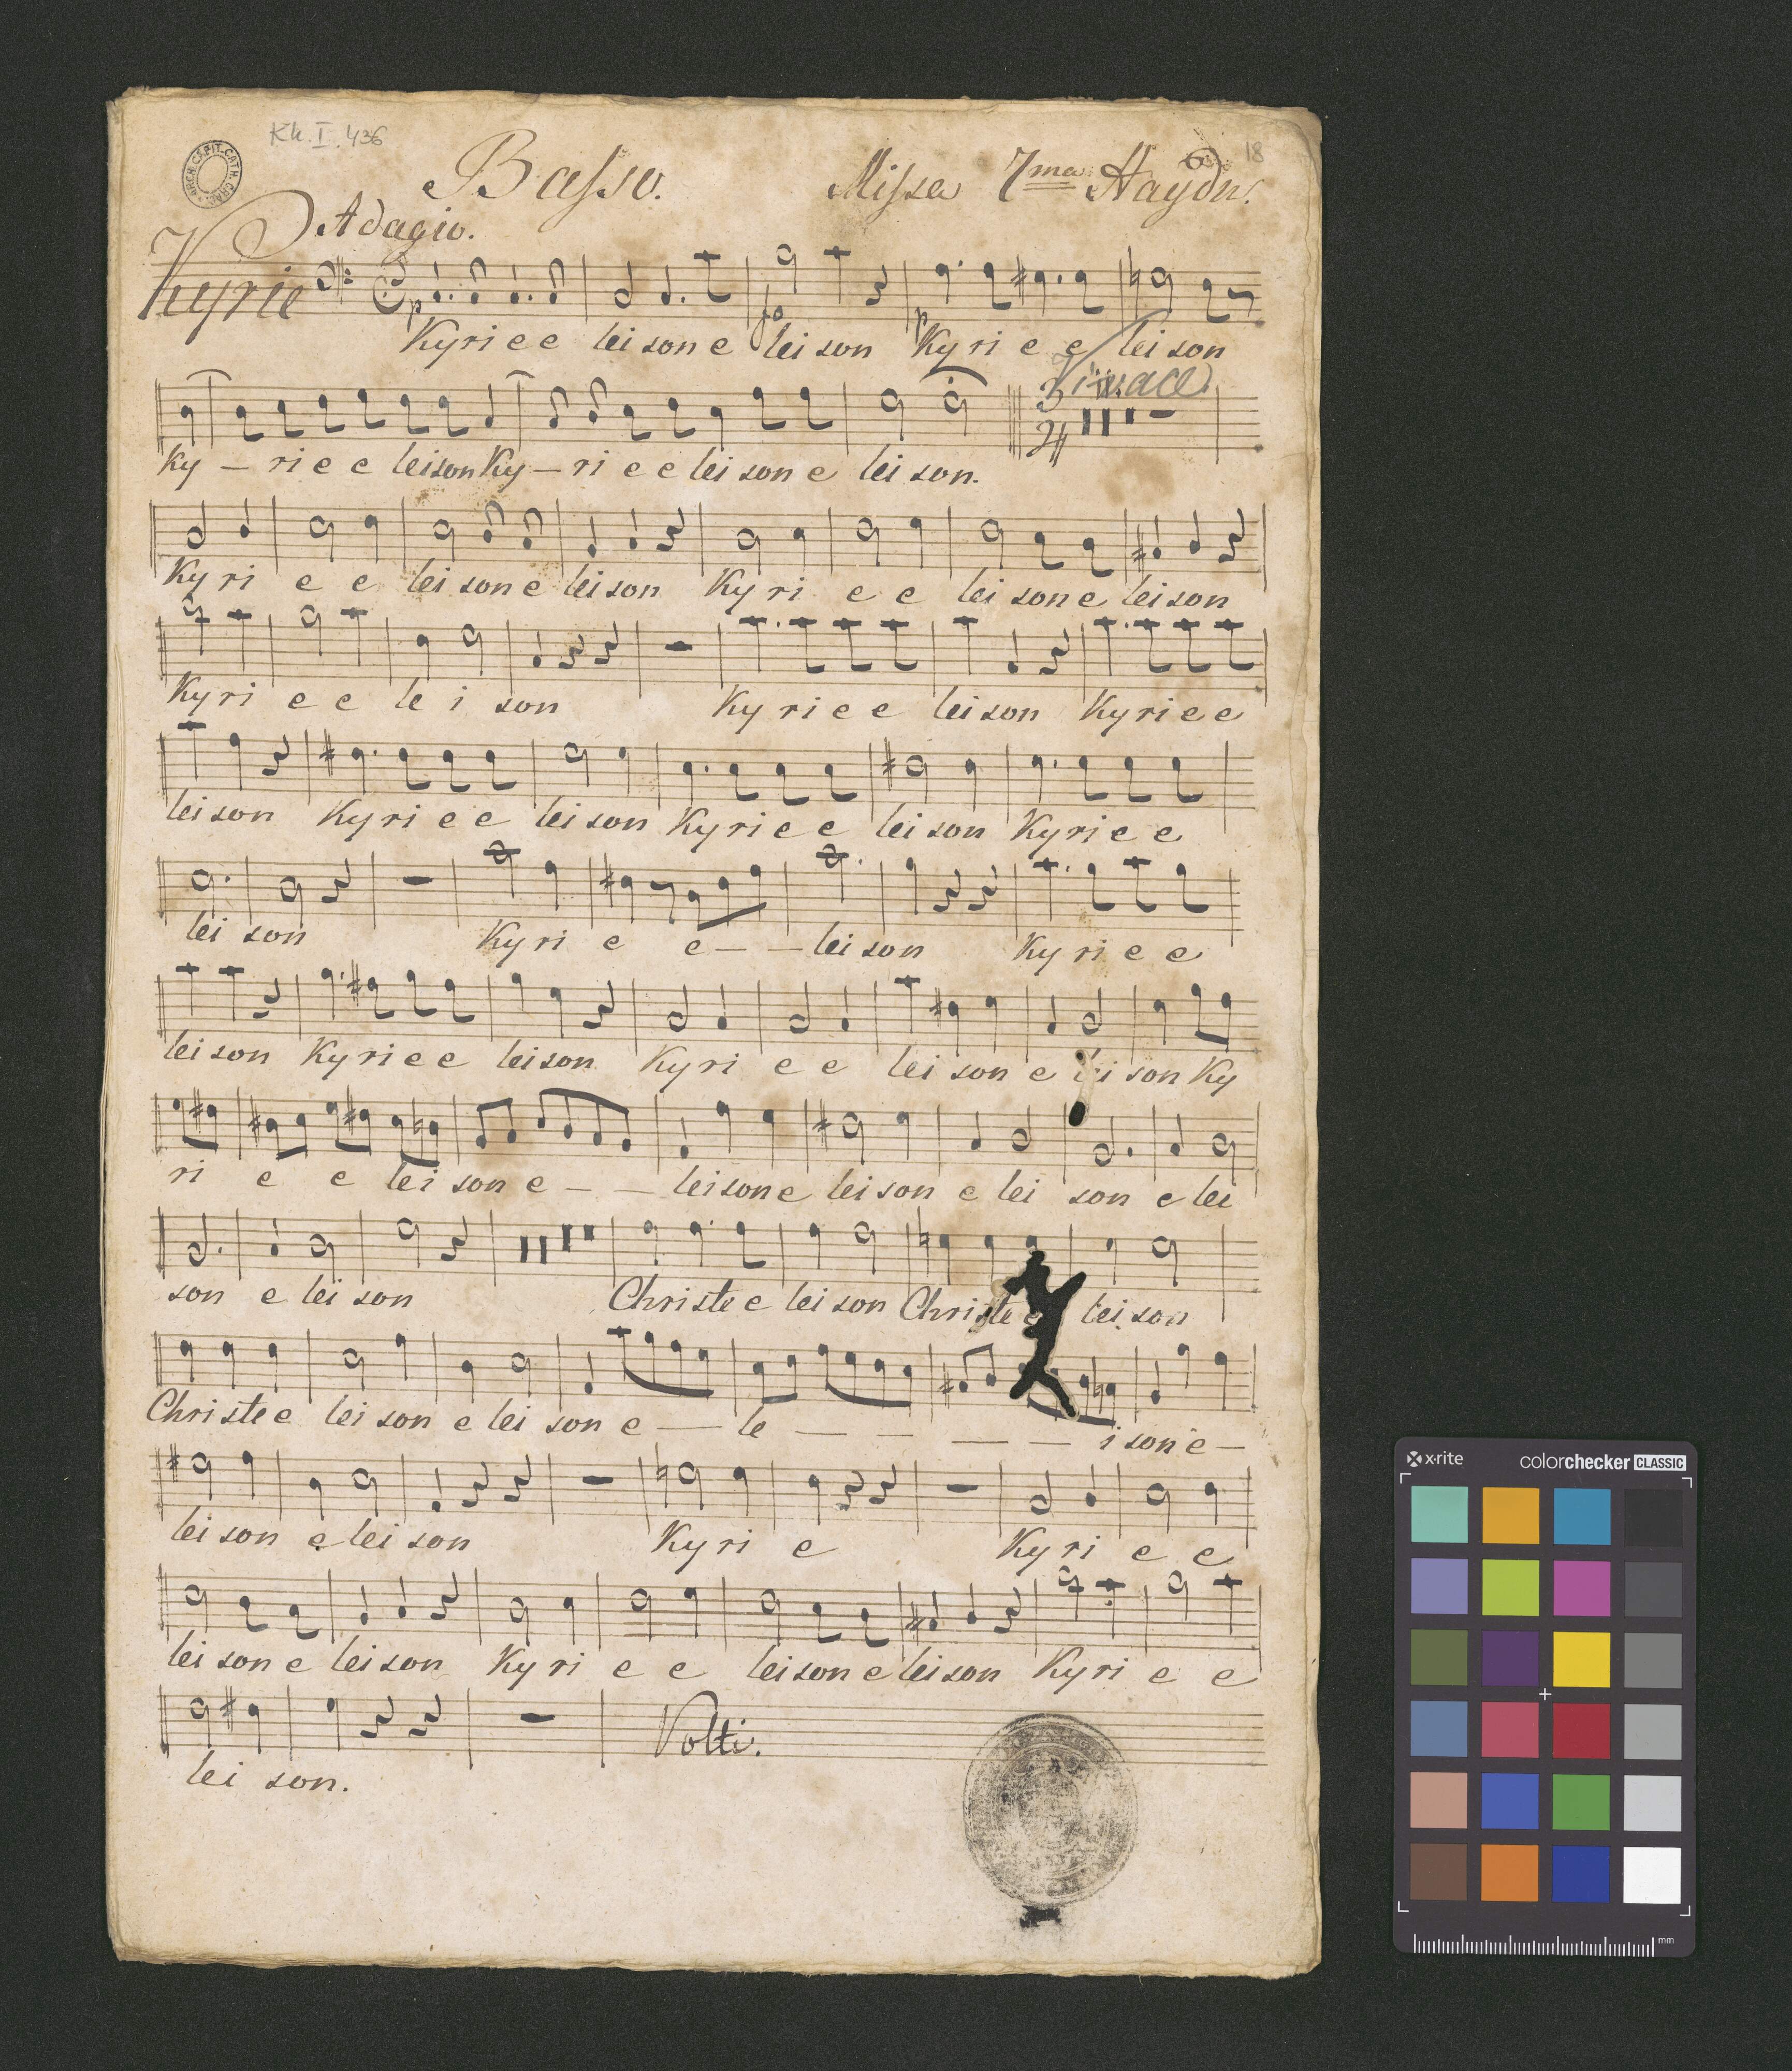 Kh. I. 436
18
ARCH. CAPIT. CATH. CRAC.
Basso. Missa 7ma Haydn.
Adagio.
Kyrie
p fo p
Kyri e e lei son e lei son Ky ri e e lei son
Vivace
3
4
Ky – ri e e leison Ky – ri e e lei son e lei son.
Ky ri e e lei son e lei son Ky ri e e lei son e lei son
Ky ri e e le i son Ky ri e e lei son Ky ri e e
lei son Ky ri e e lei son Ky ri e e lei son Ky ri e e
lei son Ky ri e e – – lei son Ky ri e e
lei son Ky ri e e lei son Ky ri e e lei son e lei son Ky
ri e e lei son e – – lei son e lei son e lei son e lei
son e lei son Christe e lei son Christe e lei son
Christe e lei son e lei son e – le – – – – – i son e –
lei son e lei son Ky ri e Ky ri e e
lei son e lei son Ky ri e e lei son e lei son Ky ri e e
lei son.
Volti.
x·rite colorchecker CLASSIC
mm